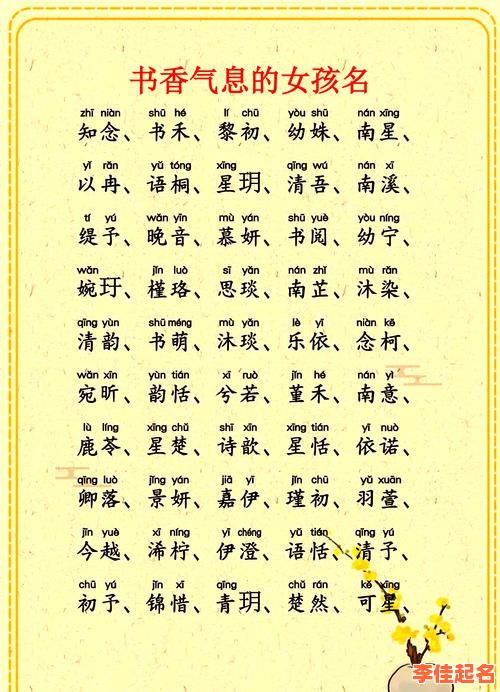 书香气息的女孩名
zhī niàn shū hé lí chū yòu shū nán xīng
知念、书禾、黎初、幼姝、南星、
yǐ rǎn yǔ tóng xīng qīng wú nán xī
以冉、语桐、星玥、清吾、南溪、
tí yú wǎn yīn mù yán shū yuè yòu níng
缇予、晚音、慕妍、书阅、幼宁、
wǎn jǐn luò sī yǎn nán zhǐ mù rǎn
婉玗、槿珞、思琰、南芷、沐染、
qīng yùn shū méng mù yǎn lè yī niàn kē
清韵、书萌、沐琰、乐依、念柯、
wǎn xīn yùn tián xī ruò jǐn hé nán yì
宛昕、韵恬、兮若、堇禾、南意、
lù líng xīng chǔ shī xīn xīng tián yī nuò
鹿苓、星楚、诗歆、星恬、依诺、
qīng luò jǐng yán jiā yī jǐn chū yǔ xuān
卿落、景妍、嘉伊、瑾初、羽萱、
jīn yuè xī níng yī chéng yǔ tián qīng yú
今越、浠柠、伊澄、语恬、清予、
chū yú jǐn xī qīng chǔ rán kě xīng
初予、锦惜、青玥、楚然、可星、
李佳起名